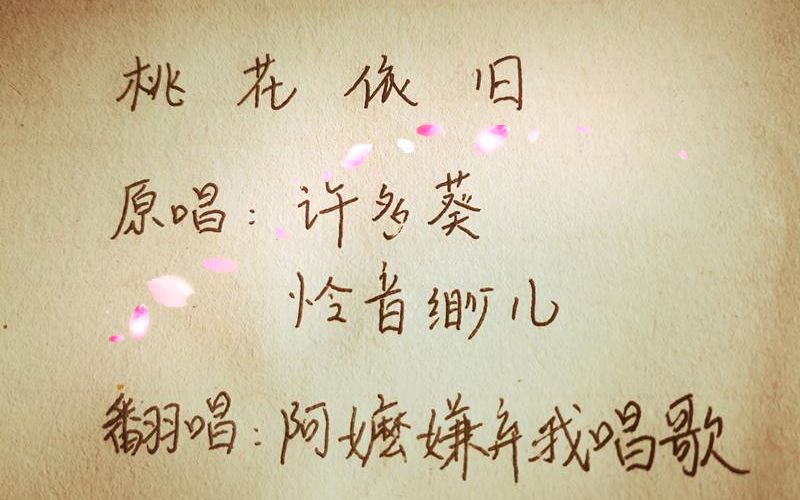 桃花依旧
原唱：许多葵
怜音缈儿
翻唱：阿嬷嫌弃我唱歌